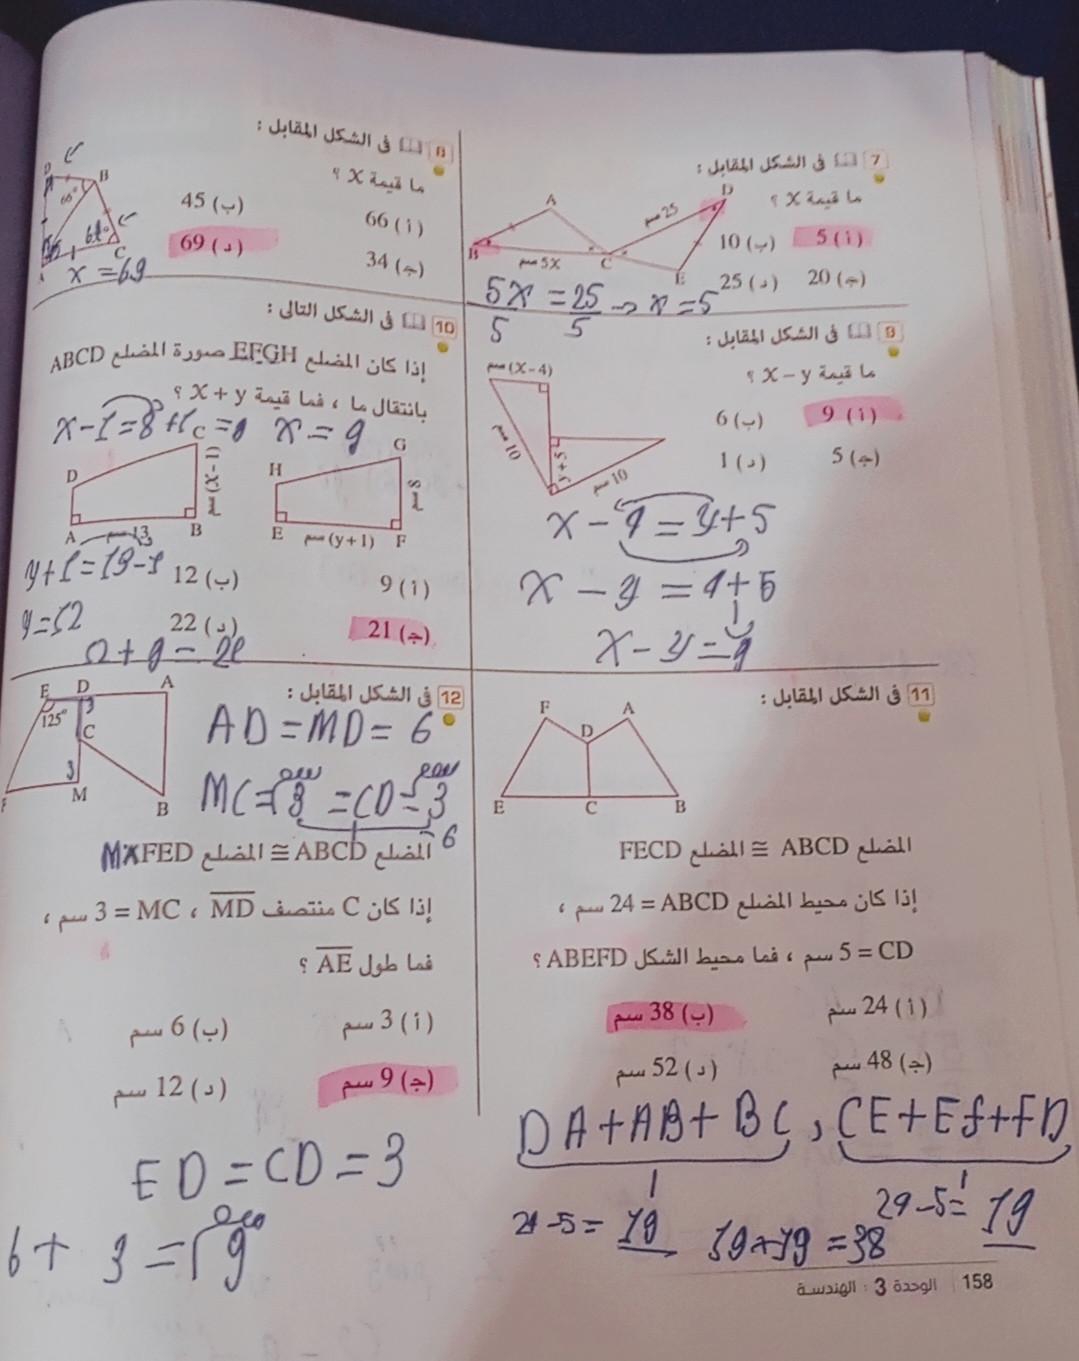 7 في الشكل المقابل :
ما قيمة X ؟
A
D
B
C
E
25 سم
5X سم
(أ) 5
(ب) 10
(ج) 20
(د) 25
5x = 25 → x = 5
5 5
8 في الشكل المقابل :
ما قيمة X ؟
B
C
66°
(أ) 66
(ب) 45
(ج) 34
(د) 69
x = 69
9 في الشكل المقابل :
ما قيمة X – y ؟
(X – 4) سم
10 سم
y + 5
10 سم
(أ) 9
(ب) 6
(ج) 5
(د) 1
x - 4 = y + 5
x - y = 4 + 5
x - y = 9
10 في الشكل التالى :
إذا كان المضلع EFGH صورة المضلع ABCD
بانتقال ما ، فما قيمة X + y ؟
x - 1 = 8 +1
x = 9
C
D
(X – 1) سم
A
13 سم
B
G
H
8 سم
E
(y + 1) سم
F
y + 1 = 13 - 1
y = 12
(أ) 9
(ب) 12
(ج) 21
(د) 22
11 في الشكل المقابل :
F
A
D
E
C
B
المضلع ABCD ≅ المضلع FECD
إذا كان محيط المضلع ABCD = 24 سم ،
CD = 5 سم ، فما محيط الشكل ABEFD ؟
(أ) 24 سم
(ب) 38 سم
(ج) 48 سم
(د) 52 سم
DA + AB + BC , CE + Ef + FD
24 - 5 = 19
24 - 5 = 19
19 + 19 = 38
12 في الشكل المقابل :
E
D
A
125°
3
C
3
F
M
B
AD = MD = 6
MC = 3 سم = CD = 3 سم
6
المضلع ABCD ≅ المضلع MFED
إذا كان C منتصف MD ، MC = 3 سم ،
فما طول AE ؟
(أ) 3 سم
(ب) 6 سم
(ج) 9 سم
(د) 12 سم
ED = CD = 3
6 + 3 = 9 سم
158 الوحدة 3 : الهندسة